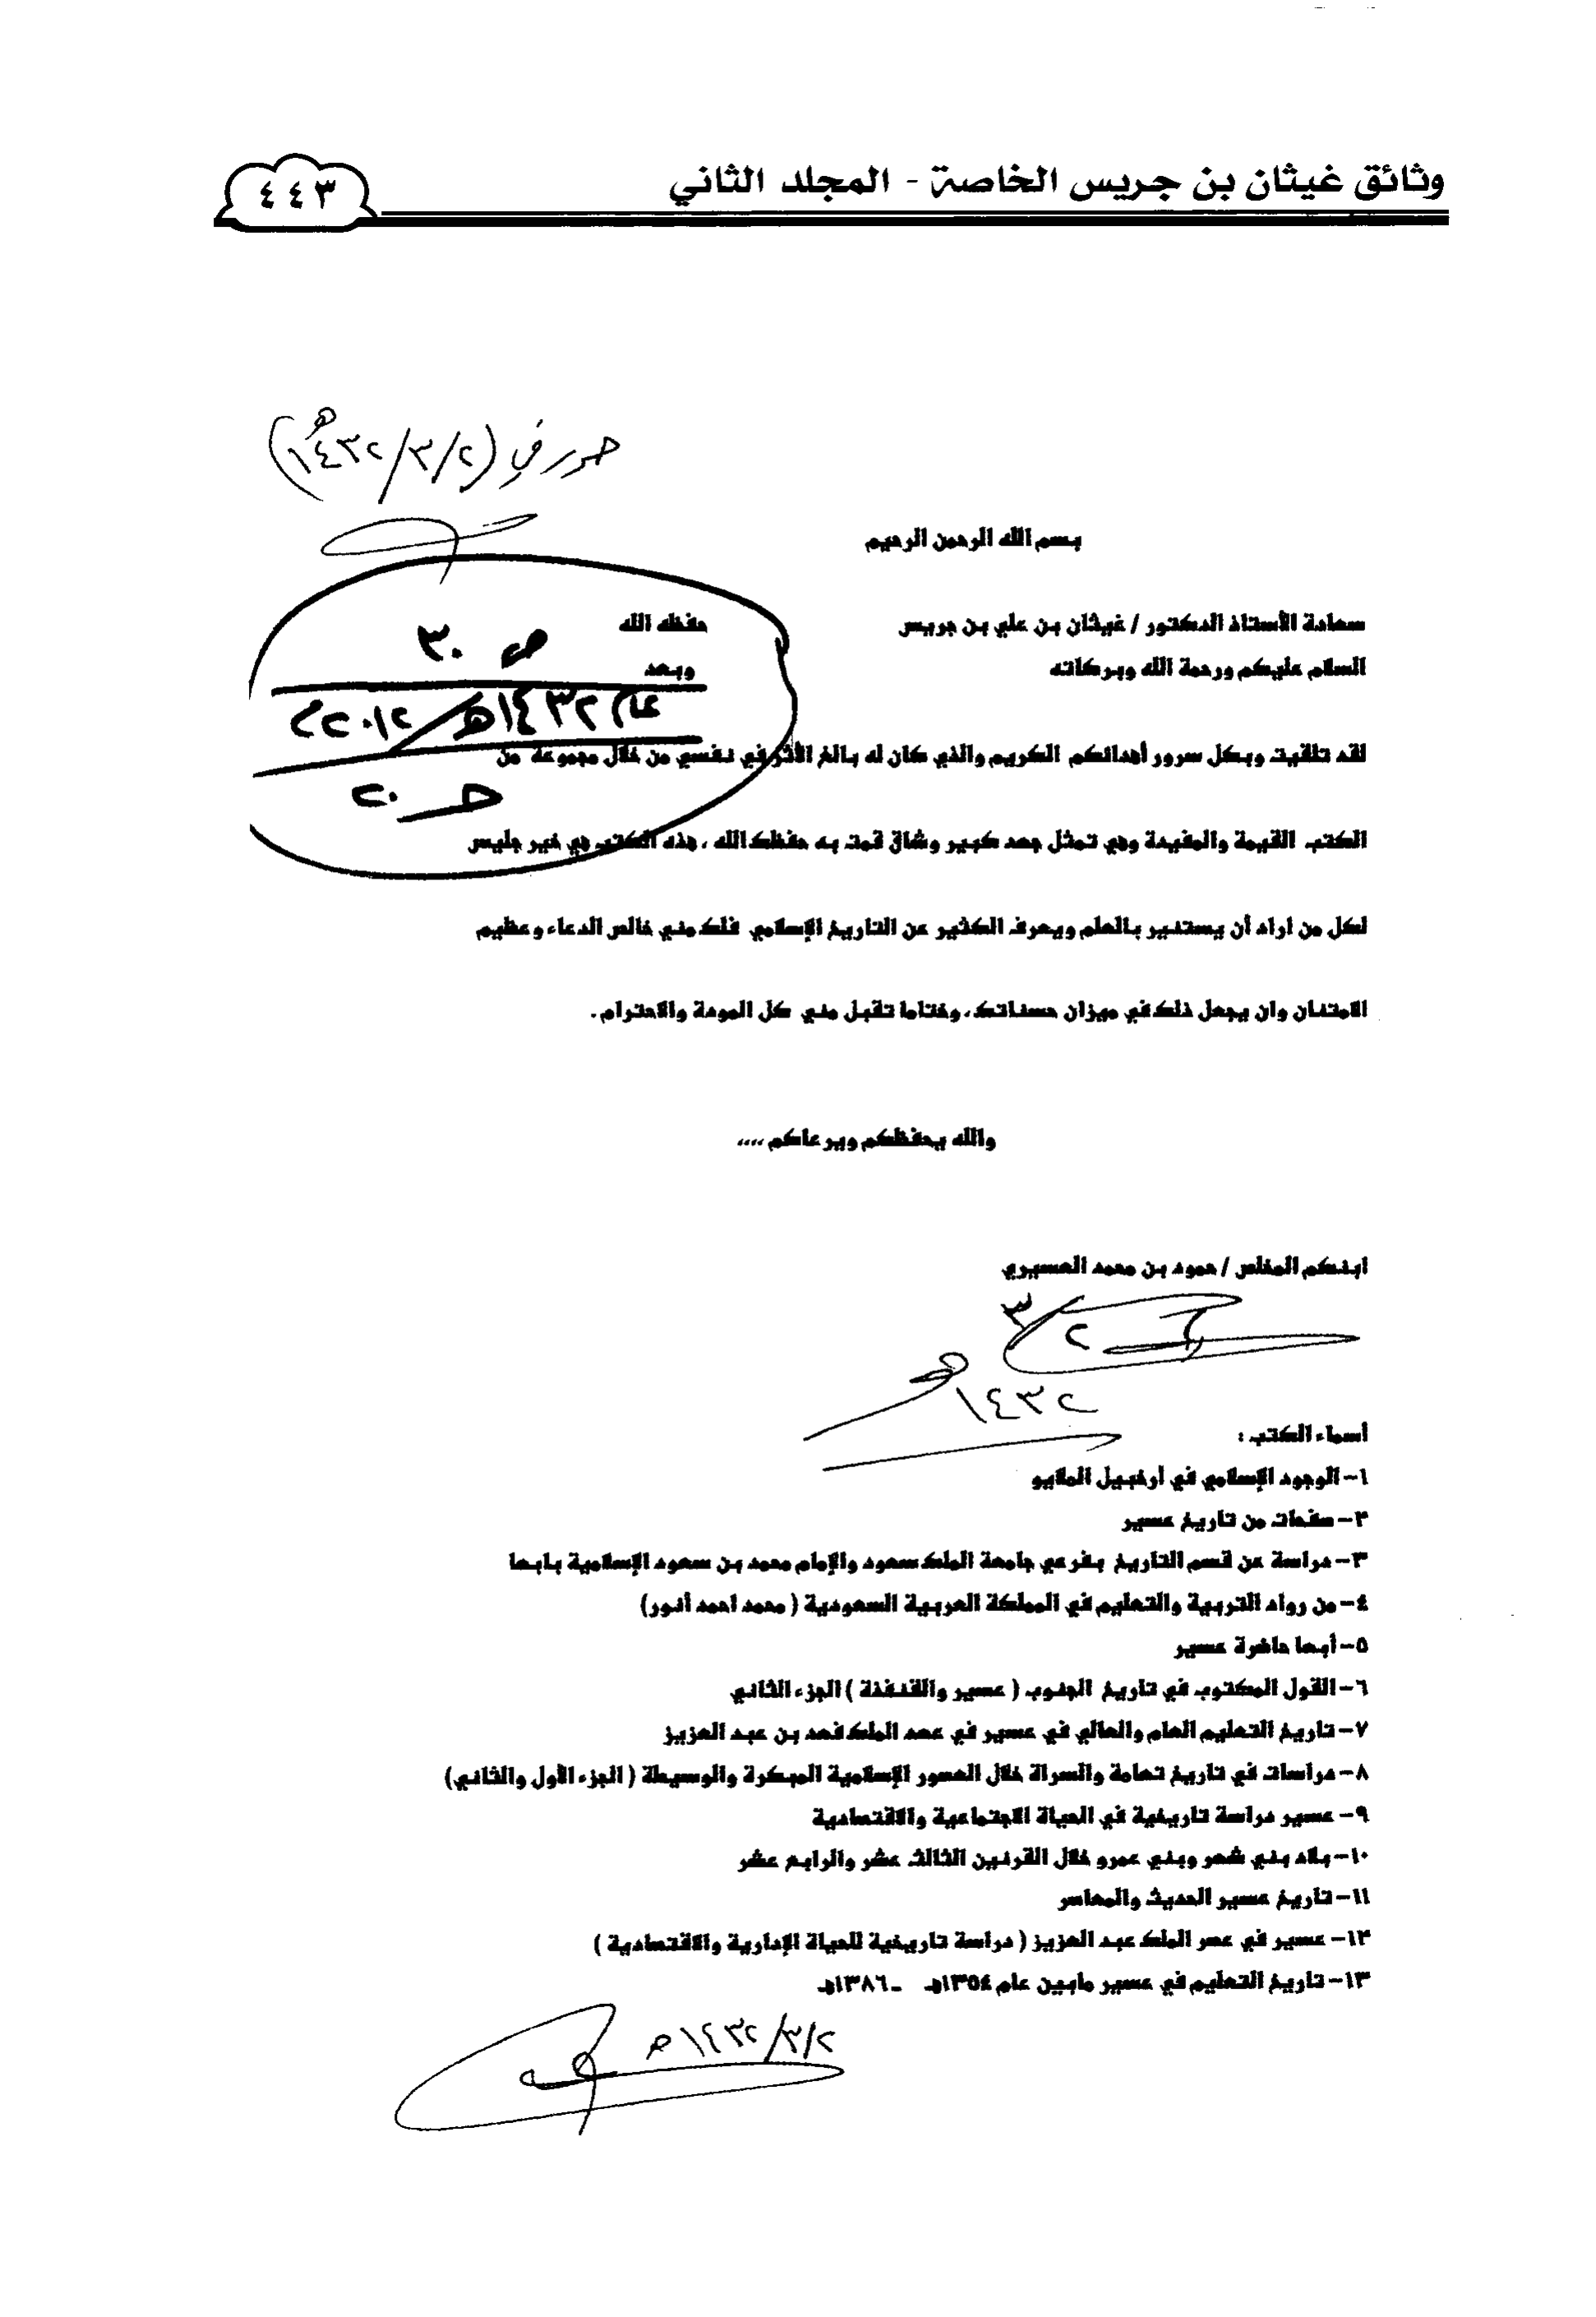 وثائق غيثان بن جريس الخاصة - المجلد الثاني
٤٤٣
حرر في (١٤٣٢/٣/٢هـ)
بسم الله الرحمن الرحيم
سعادة الأستاذ الدكتور / غيثان بن علي بن جريس حفظه الله
ص ٣٠
السلام عليكم ورحمة الله وبركاته وبعد
عام ١٤٣٢هـ/٢٠١٢م
لقد تلقيت وبكل سرور أهدائكم الكريم والذي كان له بالغ الأثر في نفسي من خلال مجموعة من
حـ ٢٠
الكتب القيمة والمفيدة وهي تمثل جهد كبير وشاق قمت به حفظك الله ، هذه الكتب هي خير جليس
لكل من اراد أن يستنير بالعلم ويعرف الكثير عن التاريخ الإسلامي فلك مني خالص الدعاء وعظيم
الامتنان وان يجعل ذلك في ميزان حسناتك، وختاما تقبل مني كل المودة والاحترام.
والله يحفظكم ويرعاكم ،،،،
ابنكم المخلص / حمود بن محمد العسيري
٣/٢
١٤٣٢هـ
أسماء الكتب :
١- الوجود الإسلامي في أرخبيل الملايو
٢- صفحات من تاريخ عسير
٣- دراسة عن قسم التاريخ بفرعي جامعة الملك سعود والإمام محمد بن سعود الإسلامية بابها
٤- من رواد التربية والتعليم في المملكة العربية السعودية ( محمد احمد أنور)
٥- أبها حاضرة عسير
٦- القول المكتوب في تاريخ الجنوب ( عسير والقنفذة ) الجزء الثاني
٧- تاريخ التعليم العام والعالي في عسير في عهد الملك فهد بن عبد العزيز
٨- دراسات في تاريخ تهامة والسراة خلال العصور الإسلامية المبكرة والوسيطة ( الجزء الأول والثاني)
٩- عسير دراسة تاريخية في الحياة الاجتماعية والاقتصادية
١٠- بلاد بني شهر وبني عمرو خلال القرنين الثالث عشر والرابع عشر
١١- تاريخ عسير الحديث والمعاصر
١٢- عسير في عصر الملك عبد العزيز ( دراسة تاريخية للحياة الإدارية والاقتصادية )
١٣- تاريخ التعليم في عسير مابين عام ١٣٥٤هـ - ١٣٨٦هـ
١٤٣٢/٣/٢ هـ